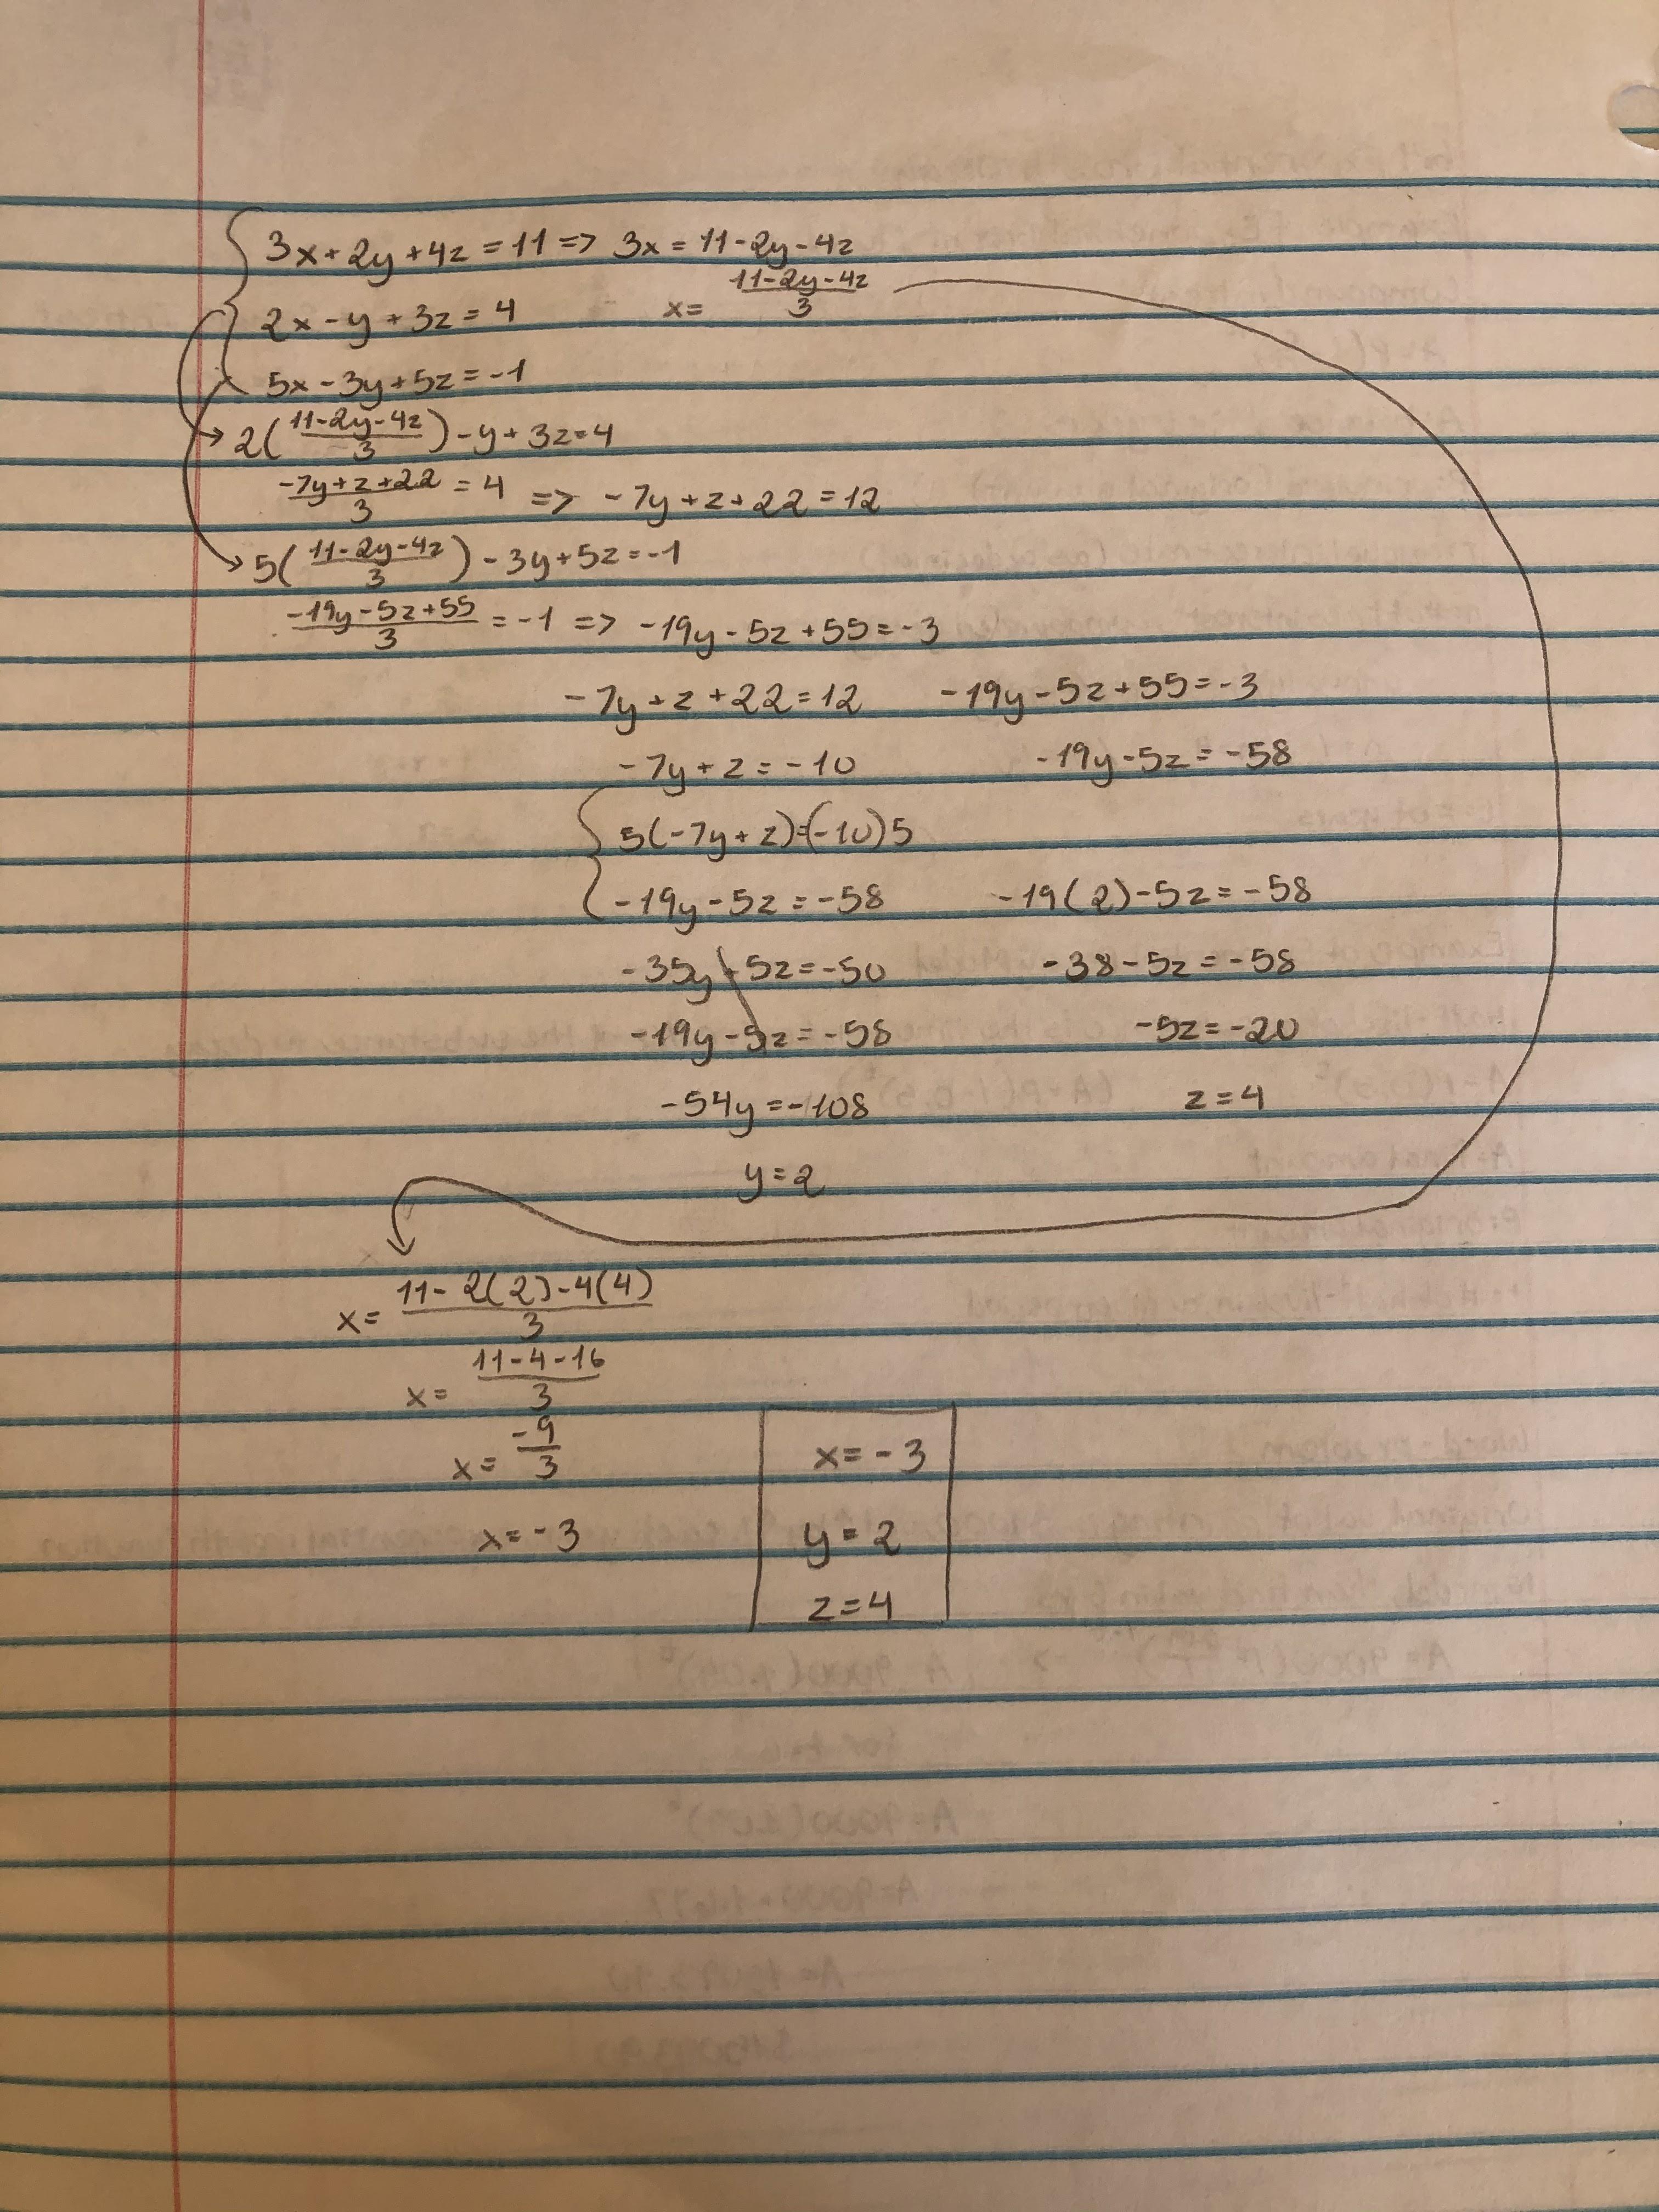 3x+2y+4z=11 => 3x=11-2y-4z
2x-y+3z=4 x= (11-2y-4z)/3
5x-3y+5z=-1
2((11-2y-4z)/3)-y+3z=4
(-7y+z+22)/3=4 => -7y+z+22=12
5((11-2y-4z)/3)-3y+5z=-1
(-19y-5z+55)/3=-1 => -19y-5z+55=-3
-7y+z+22=12 -19y-5z+55=-3
-7y+z=-10 -19y-5z=-58
5(-7y+z)=(-10)5
-19y-5z=-58 -19(2)-5z=-58
-35y+5z=-50 -38-5z=-58
-19y-5z=-58 -5z=-20
-54y=-108 z=4
y=2
x= (11-2(2)-4(4))/3
x= (11-4-16)/3
x= -9/3
x=-3
x=-3
y=2
z=4